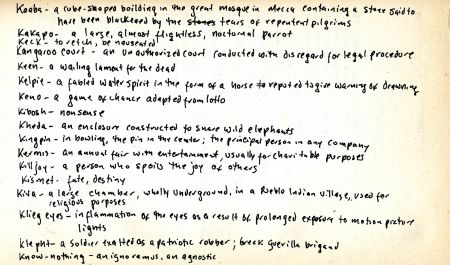 Kaaba - a cube-shaped building in the great mosque in Mecca containing a stone said to
have been blackened by the tears of repentent pilgrims
Kakapo - a large, almost flightless, nocturnal parrot
Keck - to retch, be nauseated
Kangaroo court - an unauthorized court conducted with disregard for legal procedure
Keen - a wailing lament for the dead
Kelpie - a fabled water spirit in the form of a horse to reputed to give warning of drowning
Keno - a game of chance adapted from lotto
Kibosh - nonsense
Kheda - an enclosure constructed to snare wild elephants
Kingpin - in bowling, the pin in the center; the principal person in any company
Kermis - an annual fair with entertainment, usually for charitable purposes
Killjoy - a person who spoils the joy of others
Kismet - fate, destiny
Kiva - a large chamber, wholly underground, in a Pueblo Indian village, used for
religious purposes
Klieg eyes - inflammation of the eyes as a result of prolonged exposure to motion picture
lights
Klepht - a soldier exalted as a patriotic robber; Greek guerilla brigand
Know-nothing - an ignoramus, an agnostic